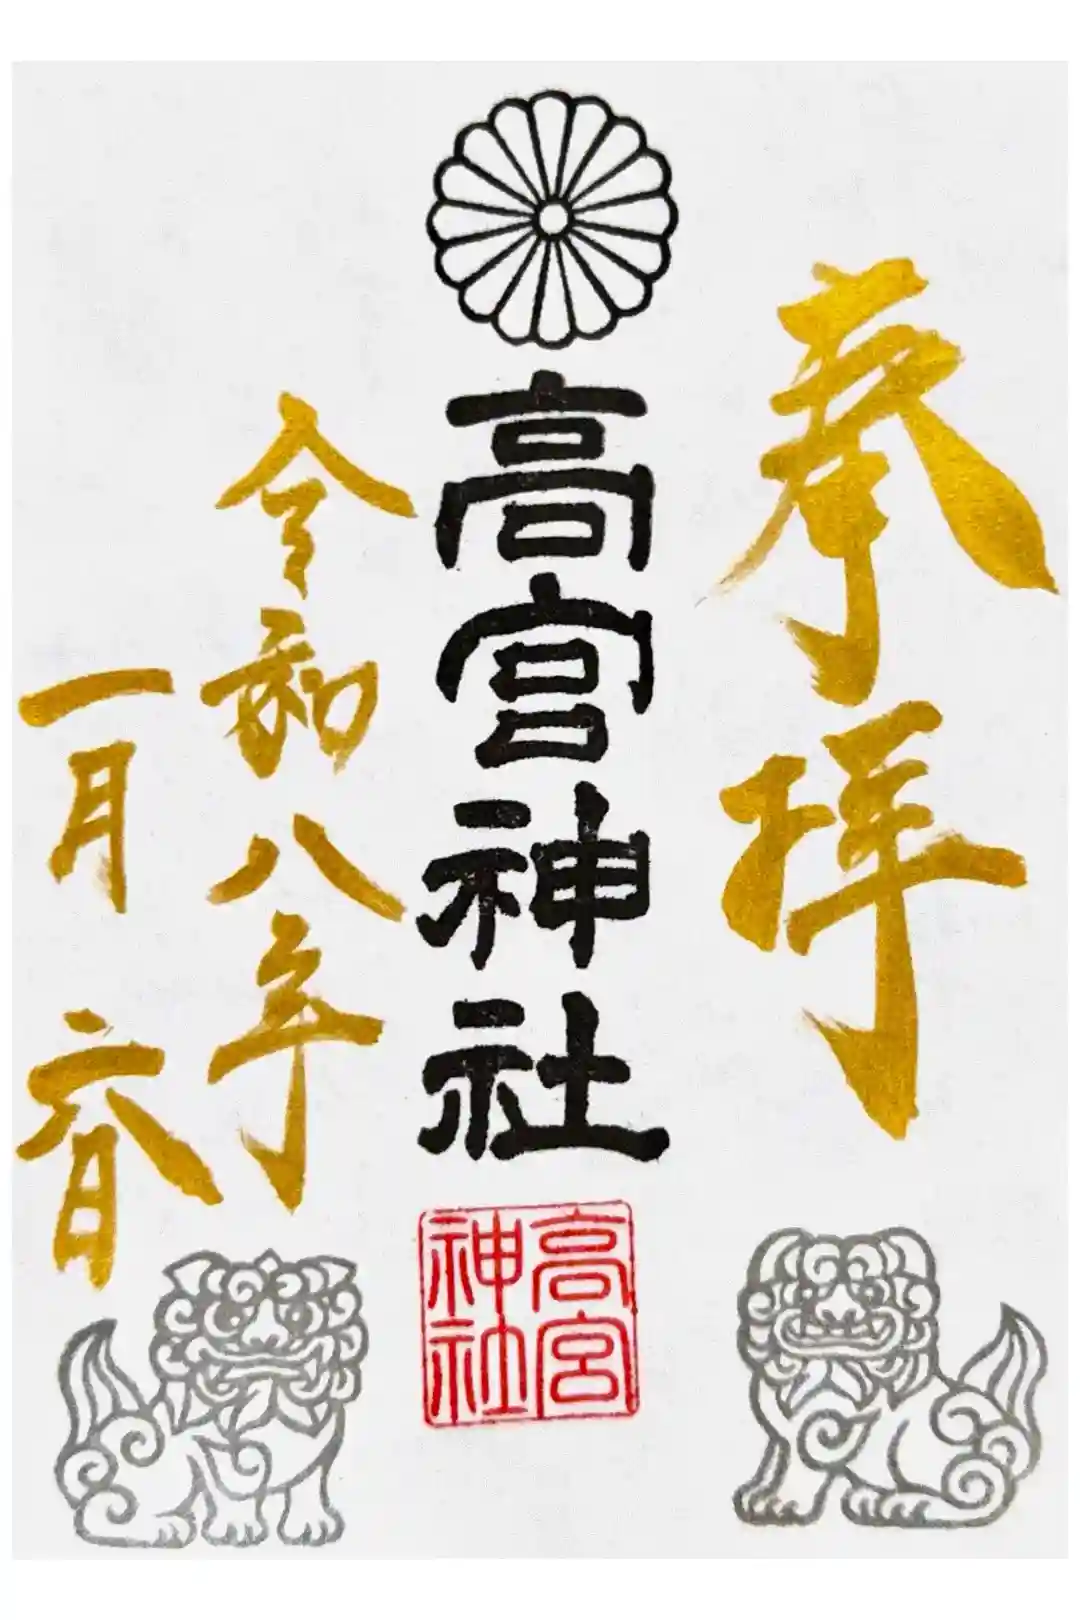 奉拝
高宮神社
高宮
神社
令和八年
一月六日